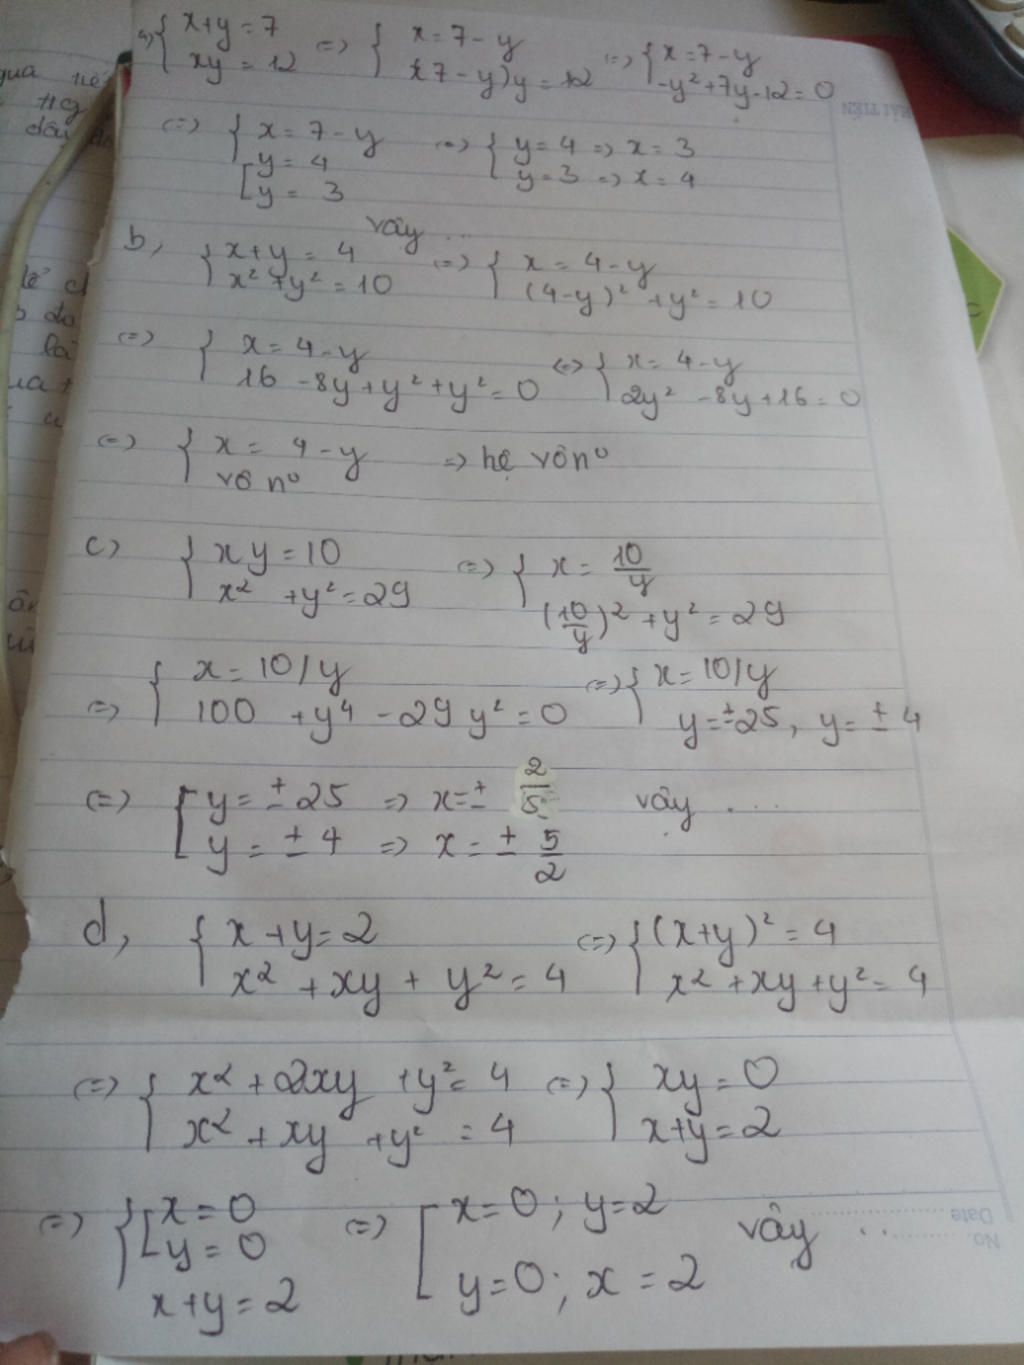 a) { x+y=7 xy=12 <=> { x=7-y (7-y)y=12 <=> { x=7-y -y²+7y-12=0
<=> { x=7-y [ y=4 y=3 <=> { y=4 => x=3 y=3 => x=4
vậy ...
b, { x+y=4 x²+y²=10 <=> { x=4-y (4-y)²+y²=10
<=> { x=4-y 16-8y+y²+y²=0 <=> { x=4-y 2y²-8y+16=0
<=> { x=4-y vô nº => hệ vô nº
c) { xy=10 x²+y²=29 <=> { x=10/y (10/y)²+y²=29
<=> { x=10/y 100+y⁴-29y²=0 <=> { x=10/y y=±25, y=±4
<=> [ y=±25 => x=±2/5 y=±4 => x=±5/2 vậy ...
d, { x+y=2 x²+xy+y²=4 <=> { (x+y)²=4 x²+xy+y²=4
<=> { x²+2xy+y²=4 x²+xy+y²=4 <=> { xy=0 x+y=2
<=> { [ x=0 y=0 x+y=2 <=> [ x=0; y=2 y=0; x=2 vậy ...
No.
Date